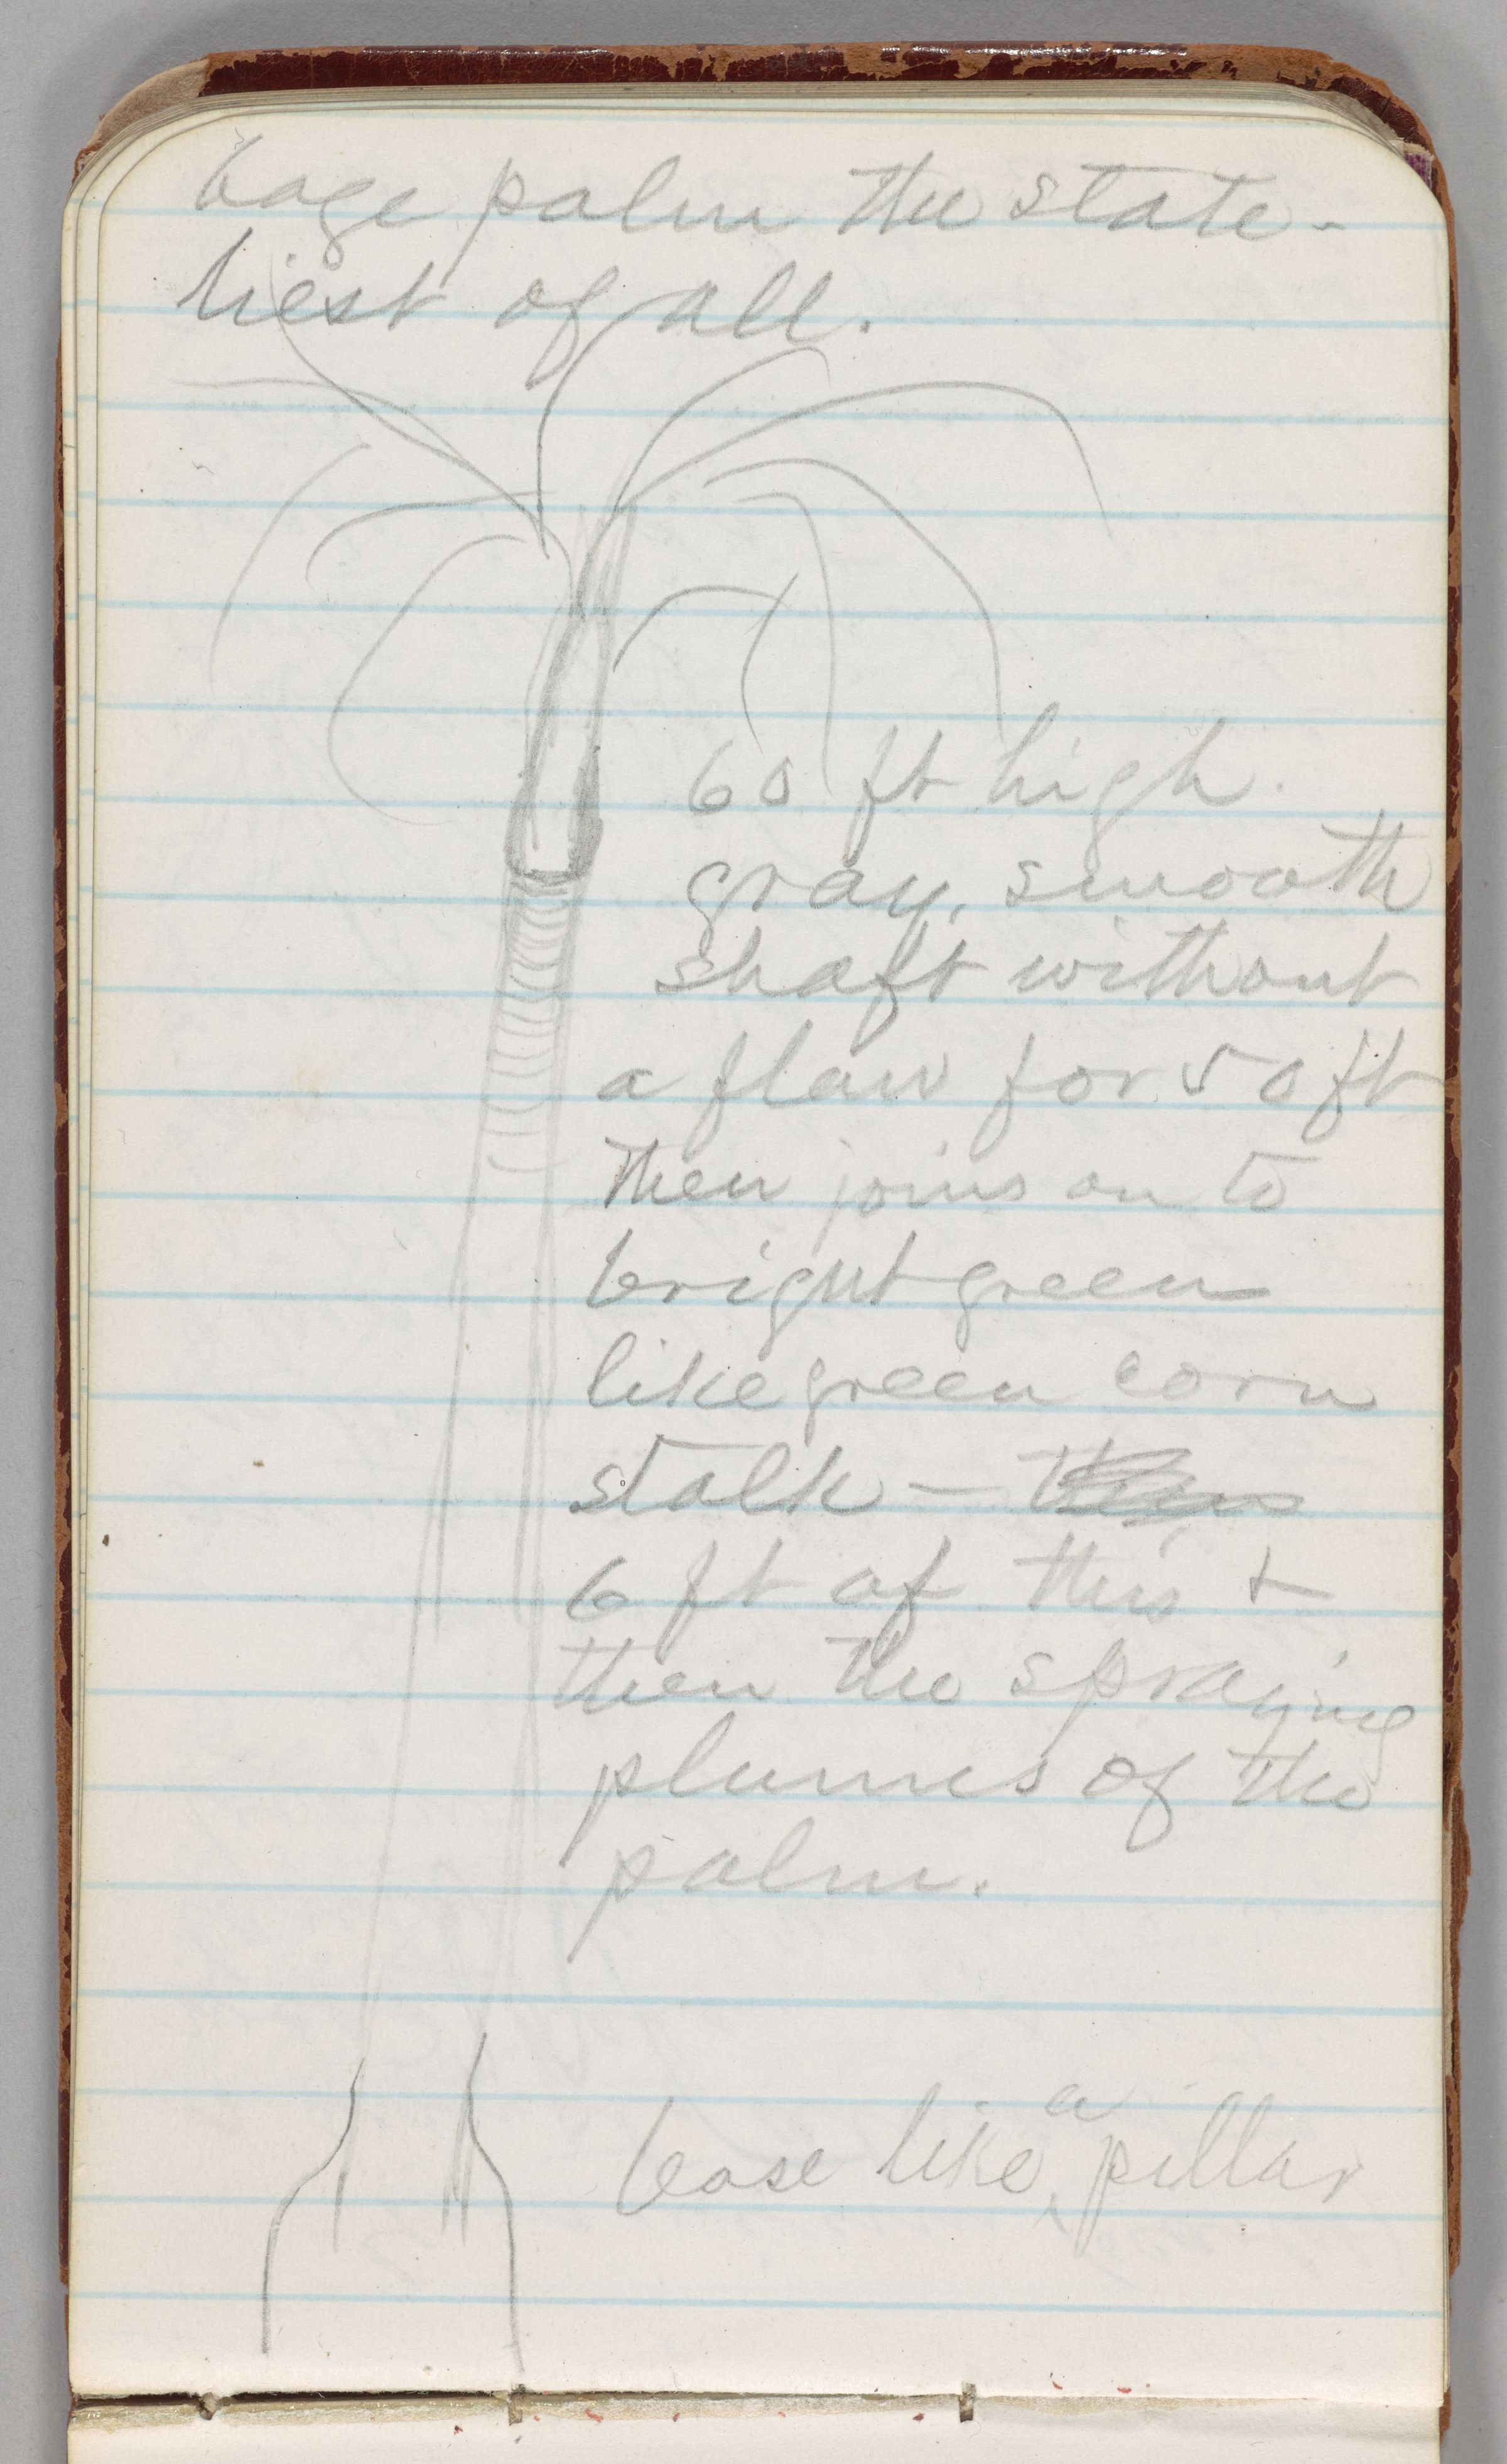 bage palm the state-
liest of all.
60 ft high.
gray, smooth
shaft without
a flaw for 50 ft
then joins on to
bright green
like green corn
stalk —
6 ft of this +
then the spraying
plumes of the
palm.
base like a pillar